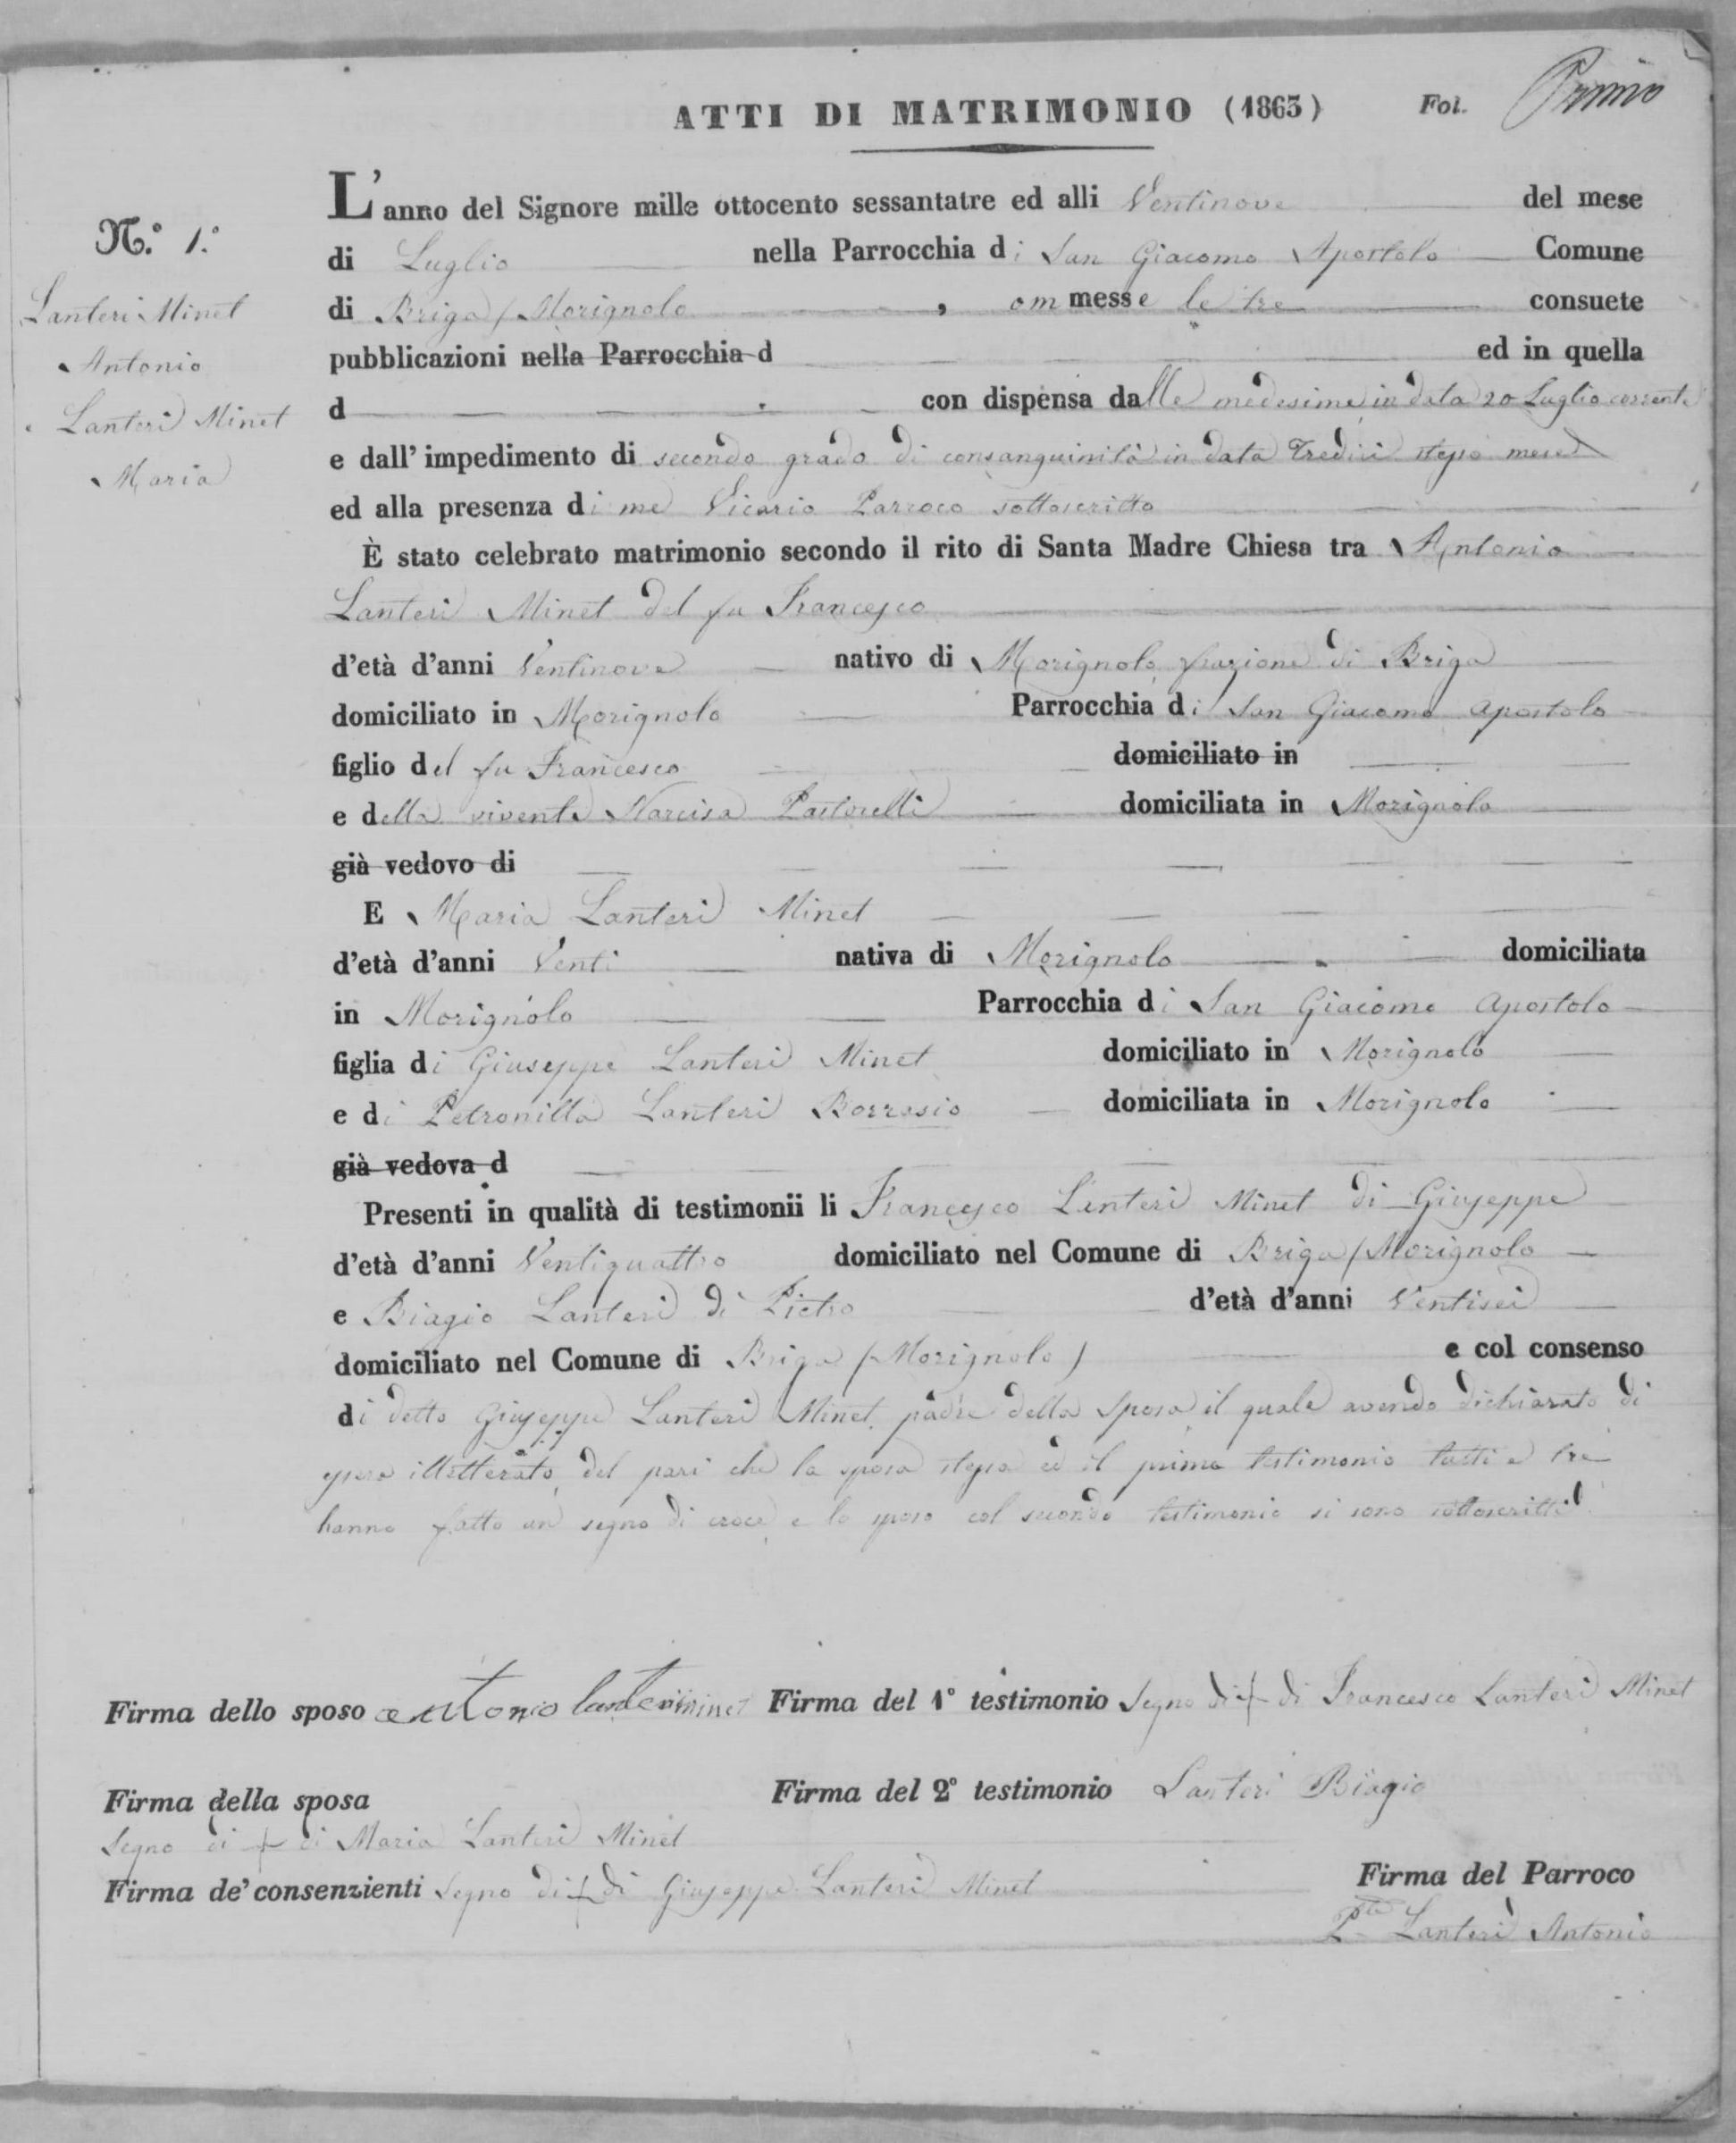 ATTI DI MATRIMONIO (1863) Fol. Primo
N.° 1.°
Lanteri Minet
Antonio
e Lanteri Minet
Maria
L'anno del Signore mille ottocento sessantatre ed alli Ventinove del mese
di Luglio nella Parrocchia di San Giacomo Apostolo Comune
di Briga / Morignolo , ommesse le tre consuete
pubblicazioni nella Parrocchia d ed in quella
d con dispensa dalle medesime in data 20 Luglio corrente
e dall'impedimento di secondo grado di consanguinità in data Tredici stesso mese
ed alla presenza di me Vicario Parroco sottoscritto
È stato celebrato matrimonio secondo il rito di Santa Madre Chiesa tra Antonio
Lanteri Minet del fu Francesco
d'età d'anni Ventinove nativo di Morignolo frazione di Briga
domiciliato in Morignolo Parrocchia di San Giacomo Apostolo
figlio del fu Francesco domiciliato in
e della vivente Narcisa Pastorelli domiciliata in Morignolo
già vedovo di
E Maria Lanteri Minet
d'età d'anni Venti nativa di Morignolo domiciliata
in Morignolo Parrocchia di San Giacomo Apostolo
figlia di Giuseppe Lanteri Minet domiciliato in Morignolo
e di Petronilla Lanteri Borrasio domiciliata in Morignolo
già vedova d
Presenti in qualità di testimonii li Francesco Lanteri Minet di Giuseppe
d'età d'anni Ventiquattro domiciliato nel Comune di Briga / Morignolo
e Biagio Lanteri di Pietro d'età d'anni Ventisei
domiciliato nel Comune di Briga / Morignolo / e col consenso
di detto Giuseppe Lanteri Minet padre della sposa il quale avendo dichiarato di
essere illetterato, del pari che la sposa stessa ed il primo testimonio tutti e tre
hanno fatto un segno di croce, e lo sposo col secondo testimonio si sono sottoscritti
Firma dello sposo antonio lanteri minet Firma del 1° testimonio Segno di + di Francesco Lanteri Minet
Firma della sposa Firma del 2° testimonio Lanteri Biagio
Segno di + di Maria Lanteri Minet
Firma de' consenzienti Segno di + di Giuseppe Lanteri Minet Firma del Parroco
Pte Lanteri Antonio